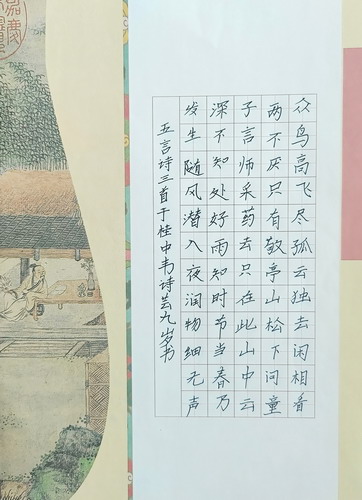 众鸟高飞尽孤云独去闲相看
两不厌只有敬亭山松下问童
子言师采药去只在此山中云
深不知处好雨知时节当春乃
发生随风潜入夜润物细无声
五言诗三首于桂中韦诗芸九岁书